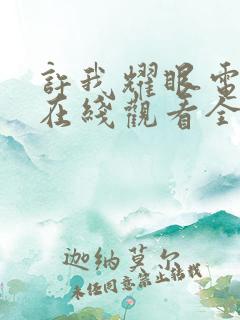 許我耀眼電
在綫觀看全
迦納莫尔
未经同意禁止转载